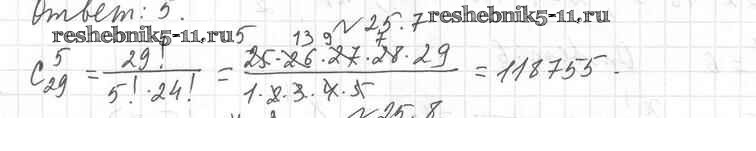 Ответ: 5.
reshebnik5-11.ru
№25.7
reshebnik5-11.ru
C₂₉⁵ = 29! / 5!·24! = 25·26·27·28·29 / 1·2·3·4·5 = 118755.
5 13 9 7
№25.8